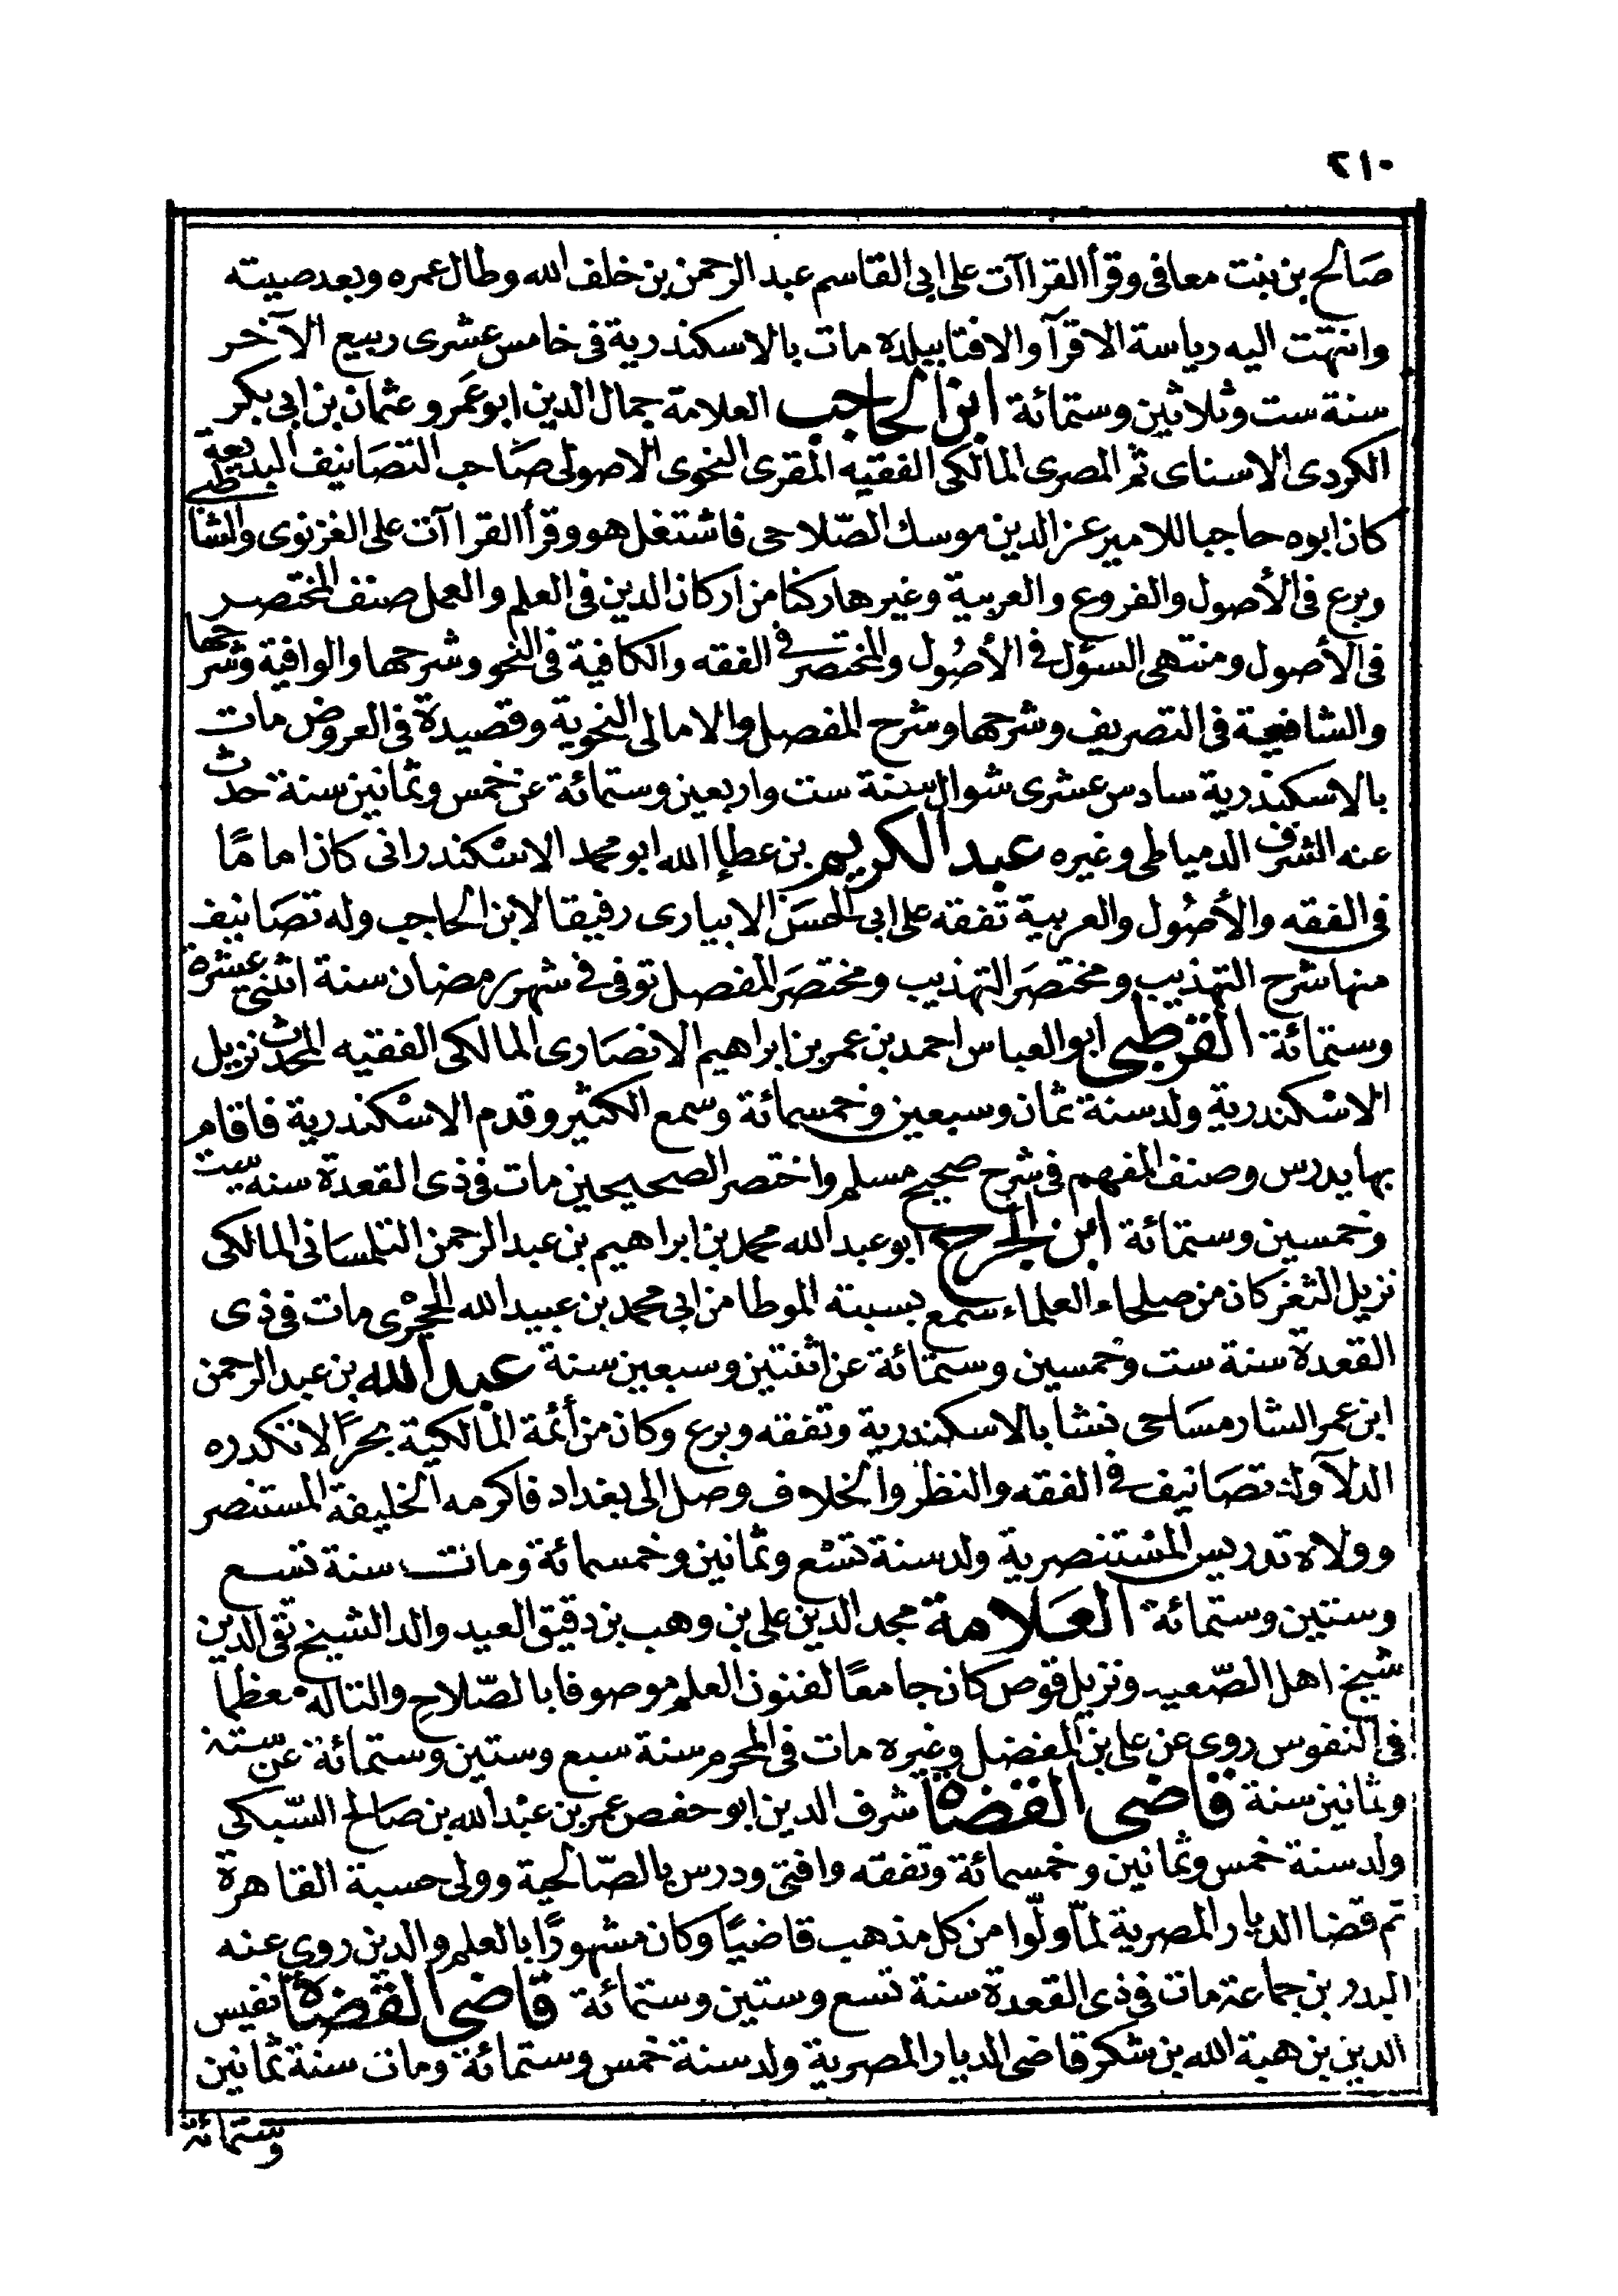 ٢١٠
صَالح بن بنت معافى وقرأ القراآت على ابى القاسم عبد الرحمن بن خلف الله وطال عمره وبعد صيته
وانتهت اليه رياسة الاقرآ والافتا ببلده مات بالاسكندرية فى خامس عشرى ربيع الآخر
سنة ست وثلاثين وستمائة ابن الحاجب العلامة جمال الدين ابو عَمرو عثمان بن ابى بكر
الكردى الاسناى ثم المصرى المالكى الفقيه المقرى النحوى الاصولى صَاحب التصَانيف البديعة
كان ابوه حاجبا للامير عز الدين موسك الصّلاحى فاشتغل هو وقرأ القراآت على الغزنوى والشاطبى
وبرع فى الأصول والفروع والعربية وغيرها ركنا من اركان الدين فى العلم والعمل صنف المختصر
فى الأصول ومنتهى السؤل فى الأصُول والمختصر فى الفقه والكافية فى النحو وشرحها والوافية وشرحها
والشافية فى التصريف وشرحها وشرح المفصل والامالى النحوية وقصيدة فى العروض مات
بالاسكندرية سادس عشرى شوال سنة ست واربعين وستمائة عن خمس وثمانين سنة حدث
عنه الشرف الدمياطى وغيره عبد الكريم بن عطاء الله ابو محمد الاسكندرانى كان اماما
فى الفقه والأصُول والعربية تفقه على ابى الحسَن الابيارى رفيقا لابن الحاجب وله تصَانيف
منها شرح التهذيب ومختصَر التهذيب ومختصَر المفصل توفى فى شهر رمضان سنة اثنتى عشرة
وستمائة القرطبى ابو العباس احمد بن عمر بن ابراهيم الانصَارى المالكى الفقيه المحدث نزيل
الاسكندرية ولد سنة ثمان وسبعين وخمسمائة وسمع الكثير وقدم الاسكندرية فاقام
بها يدرس وصنف المفهم فى شرح صحيح مسلم واختصر الصحيحين مات فى ذى القعدة سنه ست
وخمسين وستمائة ابن الجرح ابو عبد الله محمد بن ابراهيم بن عبد الرحمن التلمسانى المالكى
نزيل الثغر كان من صلحاء العلماء سمع بسبته الموطا من ابى محمد بن عبيد الله الحجرى مات فى ذى
القعدة سنة ست وخمسين وستمائة عن اثنتين وسبعين سنة عبد الله بن عبد الرحمن
ابن عمر الشارمسَاحى نشا بالاسكندرية وتفقه وبرع وكان من أئمة المالكية بحرًا لا تنكدره
الدلآ وله تصَانيف فى الفقه والنظر والخلاف وصل الى بغداد فاكرمه الخليفة المستنصر
وولاه تدريس المستنصرية ولد سنة تسع وثمانين وخمسمائة ومات سنة تسع
وستين وستمائة العَلامة مجد الدين على بن وهب بن دقيق العيد والد الشيخ تقى الدين
شيخ اهل الصّعيد ونزيل قوص كان جامعًا لفنون العلم موصوفا بالصّلاح والتاله معظما
فى النفوس روى عن على بن المفضل وغيره مات فى المحرم سنة سبع وستين وستمائة عن ستة
وثمانين سنة قاضى القضاة شرف الدين ابو حفص عمر بن عبد الله بن صَالح السّبكى
ولد سنة خمس وثمانين وخمسمائة وتفقه وافتى ودرس بالصّالحية وولى حسبة القاهرة
ثم قضا الديار المصرية لمّا ولّوا من كل مذهب قاضيًا وكان مشهورًا بالعلم والدين روى عنه
البدر بن جماعة مات فى ذى القعدة سنة تسع وستين وستمائة قاضى القضاة نفيس
الدين بن هبة الله بن شكر قاضى الديار المصرية ولد سنة خمس وستمائة ومات سنة ثمانين
وستمائة